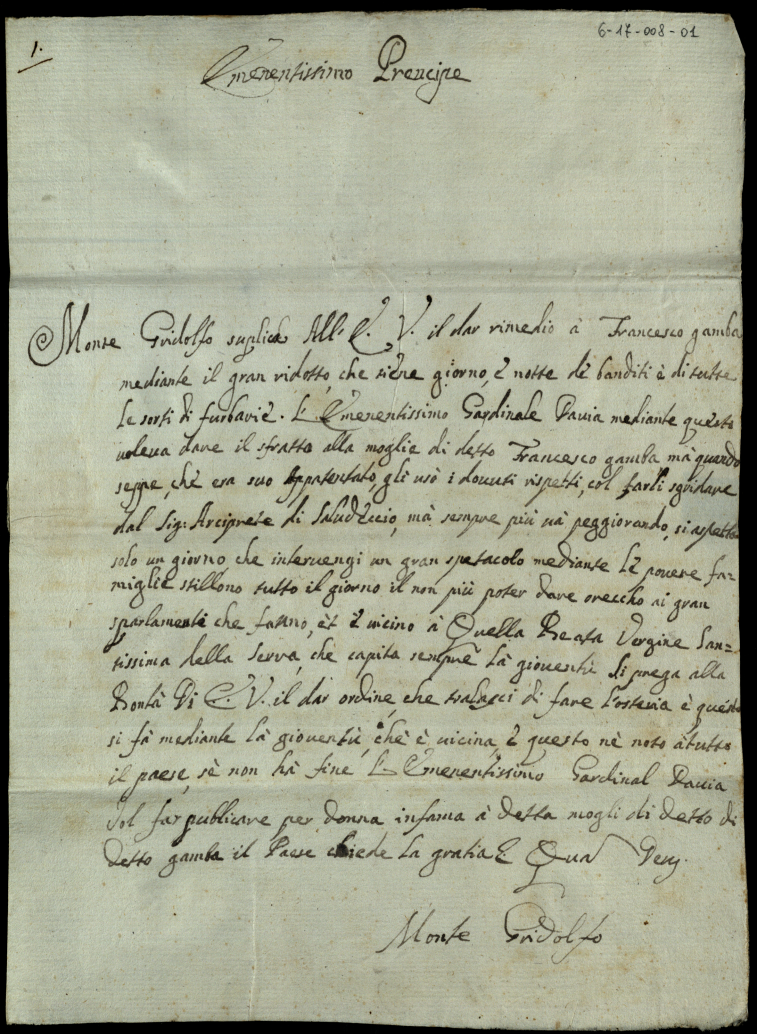 6-17-008-01
1.
Emenentissimo Prencipe
Monte Gridolfo suplica All' E. V. il dar rimedio à Francesco gamba
mediante il gran ridotto, che tiene giorno, è notte dè banditi è di tutte
le sorti di furbariè. L' Emenentissimo Gardinale Davia mediante questo
voleva dare il sfratto alla moglie di detto Francesco gamba mà quando
seppe, chè era suo Appatentato, gli usò i dovuti rispetti, col farli sgridare
dal Sig: Arciprete di Saludeccio, mà sempre più và peggiorando, si aspetta
solo un giorno, che intervengi un gran spetacolo mediante lè povere fa=
miglie stillono tutto il giorno il non più poter dare orecchio ai gran
sparlamenti che fanno, èt è vicino à Quella Beata Vergine San=
tissima della Serra, che capita sempre là gioventù si prega alla
Bontà Di E. V. il dar ordine, che tralasci di fare l'osteria è questo
si fà mediante là gioventù, chè è vicina, è questo nè noto à tutto
il paese, sè non hà fine L' Emenentissimo Gardinal Davia
vol far publicare per donna infama à detta mogli di detto di
detto gamba il Paese chiede la gratia E Qua Deus.
Monte Gridolfo